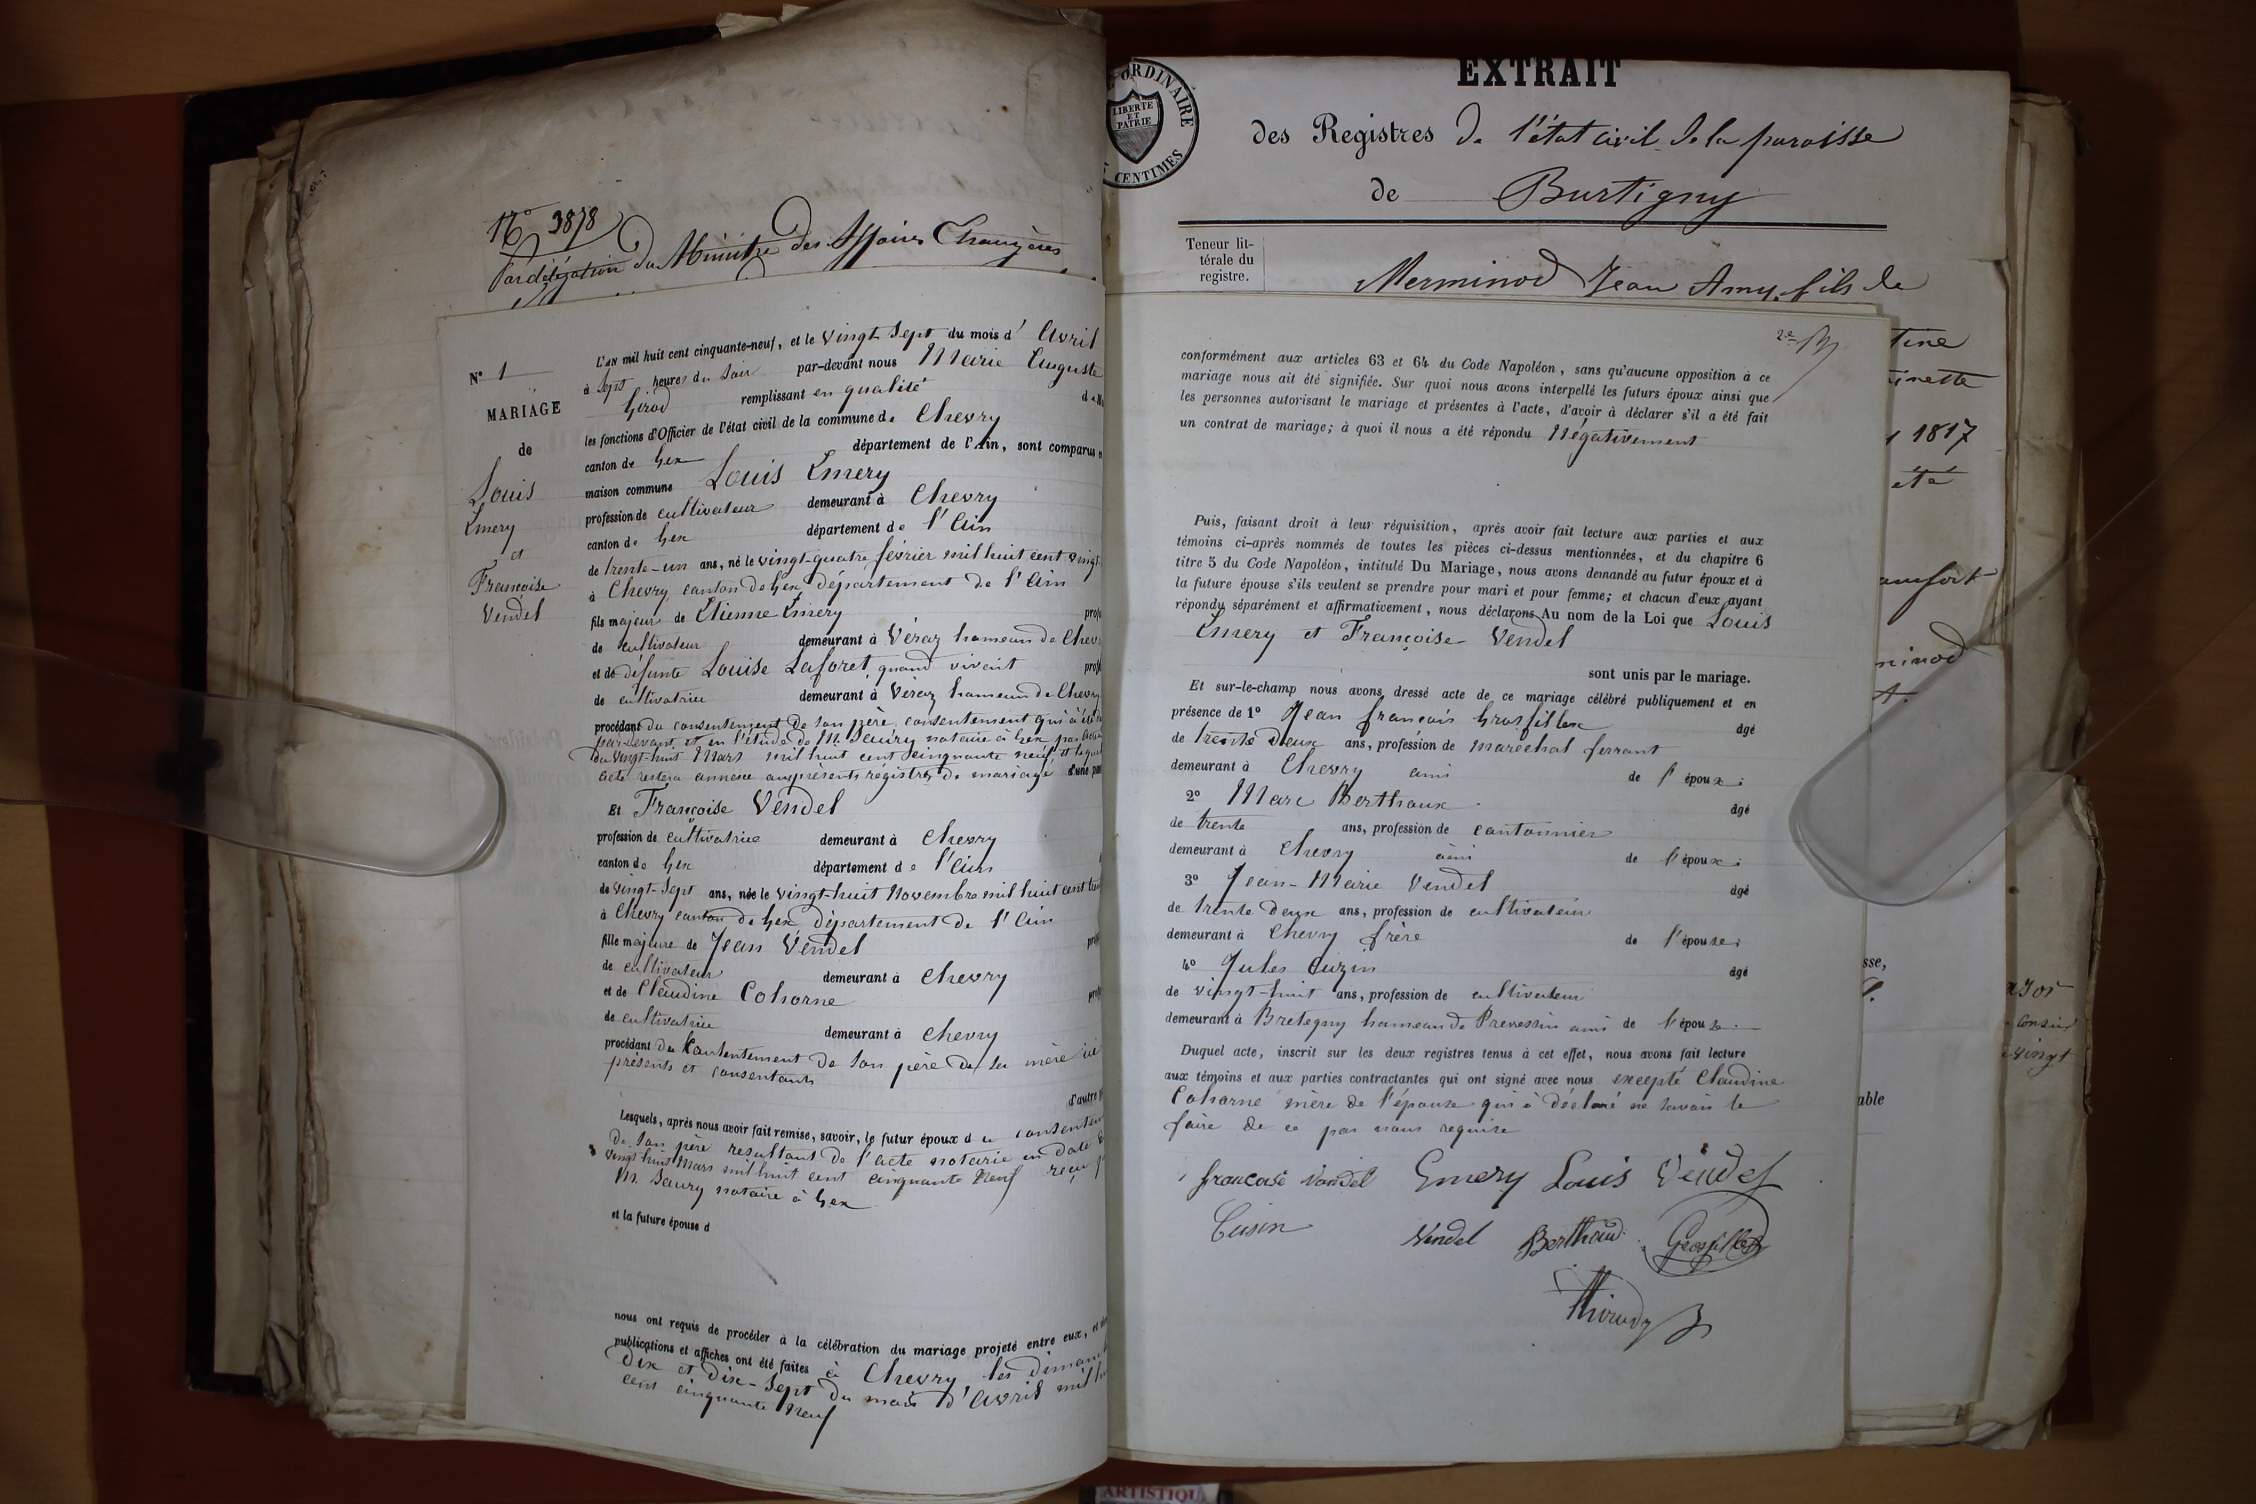 No 3878
Par délégation du Ministre des Affaires Etrangères
No 1
MARIAGE
de
Louis
Emery
et
Françoise
Vendel
L'AN mil huit cent cinquante-neuf, et le vingt sept du mois d'Avril
à sept heures du soir par-devant nous Marie Auguste
Girod remplissant en qualité de
les fonctions d'Officier de l'état civil de la commune de Chevry
canton de Gex département de l'Ain, sont comparus
maison commune Louis Emery
profession de cultivateur demeurant à Chevry
canton de Gex département de l'Ain
de trente-un ans, né le vingt-quatre février mil huit cent vingt
à Chevry canton de Gex département de l'Ain
fils majeur de Etienne Emery
de cultivateur demeurant à Véraz hameau de Chev
et de défunte Louise Laforet quand vivait
de cultivatrice demeurant à Véraz hameau de Chevry
procédant du consentement de son père, consentement qui a été
par-devant et en l'étude de M. Saury notaire à Gex
du vingt-huit Mars mil huit cent cinquante neuf et lequel
acte restera annexé au présents régistres de mariage d'une
Et Françoise Vendel
profession de cultivatrice demeurant à Chevry
canton de Gex département de l'Ain
de vingt-sept ans, née le vingt-huit Novembre mil huit cent
à Chevry canton de Gex département de l'Ain
fille majeure de Jean Vendel
de cultivateur demeurant à Chevry
et de Claudine Cohorne
de cultivatrice demeurant à Chevry
procédant du consentement de son père de sa mère ici
présents et consentants
d'autre
Lesquels, après nous avoir fait remise, savoir, le futur époux du consentem
de son père resultant de l'acte notarié en date
vingt huit Mars mil huit cent cinquante neuf reçu
M. Saury notaire à Gex
et la future épouse d
nous ont requis de procéder à la célébration du mariage projeté entre eux, et
publications et affiches ont été faites à Chevry les dimanc
dix et dix-sept du mois d'Avril mil
cent cinquante neuf
ORDINAIRE
LIBERTE
ET
PATRIE
CENTIMES
EXTRAIT
des Registres de l'état civil de la paroisse
de Burtigny
Teneur lit-
térale du
registre.
Merminod Jean Amy, fils de
conformément aux articles 63 et 64 du Code Napoléon, sans qu'aucune opposition à ce
mariage nous ait été signifiée. Sur quoi nous avons interpellé les futurs époux ainsi que
les personnes autorisant le mariage et présentes à l'acte, d'avoir à déclarer s'il a été fait
un contrat de mariage; à quoi il nous a été répondu Négativement
Puis, faisant droit à leur réquisition, après avoir fait lecture aux parties et aux
témoins ci-après nommés de toutes les pièces ci-dessus mentionnées, et du chapitre 6
titre 5 du Code Napoléon, intitulé Du Mariage, nous avons demandé au futur époux et à
la future épouse s'ils veulent se prendre pour mari et pour femme; et chacun d'eux ayant
répondu séparément et affirmativement, nous déclarons Au nom de la Loi que Louis
Emery et Françoise Vendel
sont unis par le mariage.
Et sur-le-champ nous avons dressé acte de ce mariage célébré publiquement et en
présence de 1º Jean françois Grosfillex âgé
de trente deux ans, profession de maréchal ferrant
demeurant à Chevry ami de l'époux;
2º Marc Berthoux âgé
de trente ans, profession de cantonnier
demeurant à Chevry ami de l'époux;
3º Jean-Marie Vendel âgé
de trente deux ans, profession de cultivateur
demeurant à Chevry frère de l'épouse;
4º Jules Cuzin âgé
de vingt-huit ans, profession de cultivateur
demeurant à Bretegny hameau de Prevessin ami de l'épouse
Duquel acte, inscrit sur les deux registres tenus à cet effet, nous avons fait lecture
aux témoins et aux parties contractantes qui ont signé avec nous excepté Claudine
Cohorne mère de l'épouse qui a déclaré ne savoir le
faire de ce par nous requise
françoise Vandel Emery Louis Vendel
Cusin Vendel Berthoud Grosfillex
1817
été
minod
sse,
able
vingt
ARTISTIQU